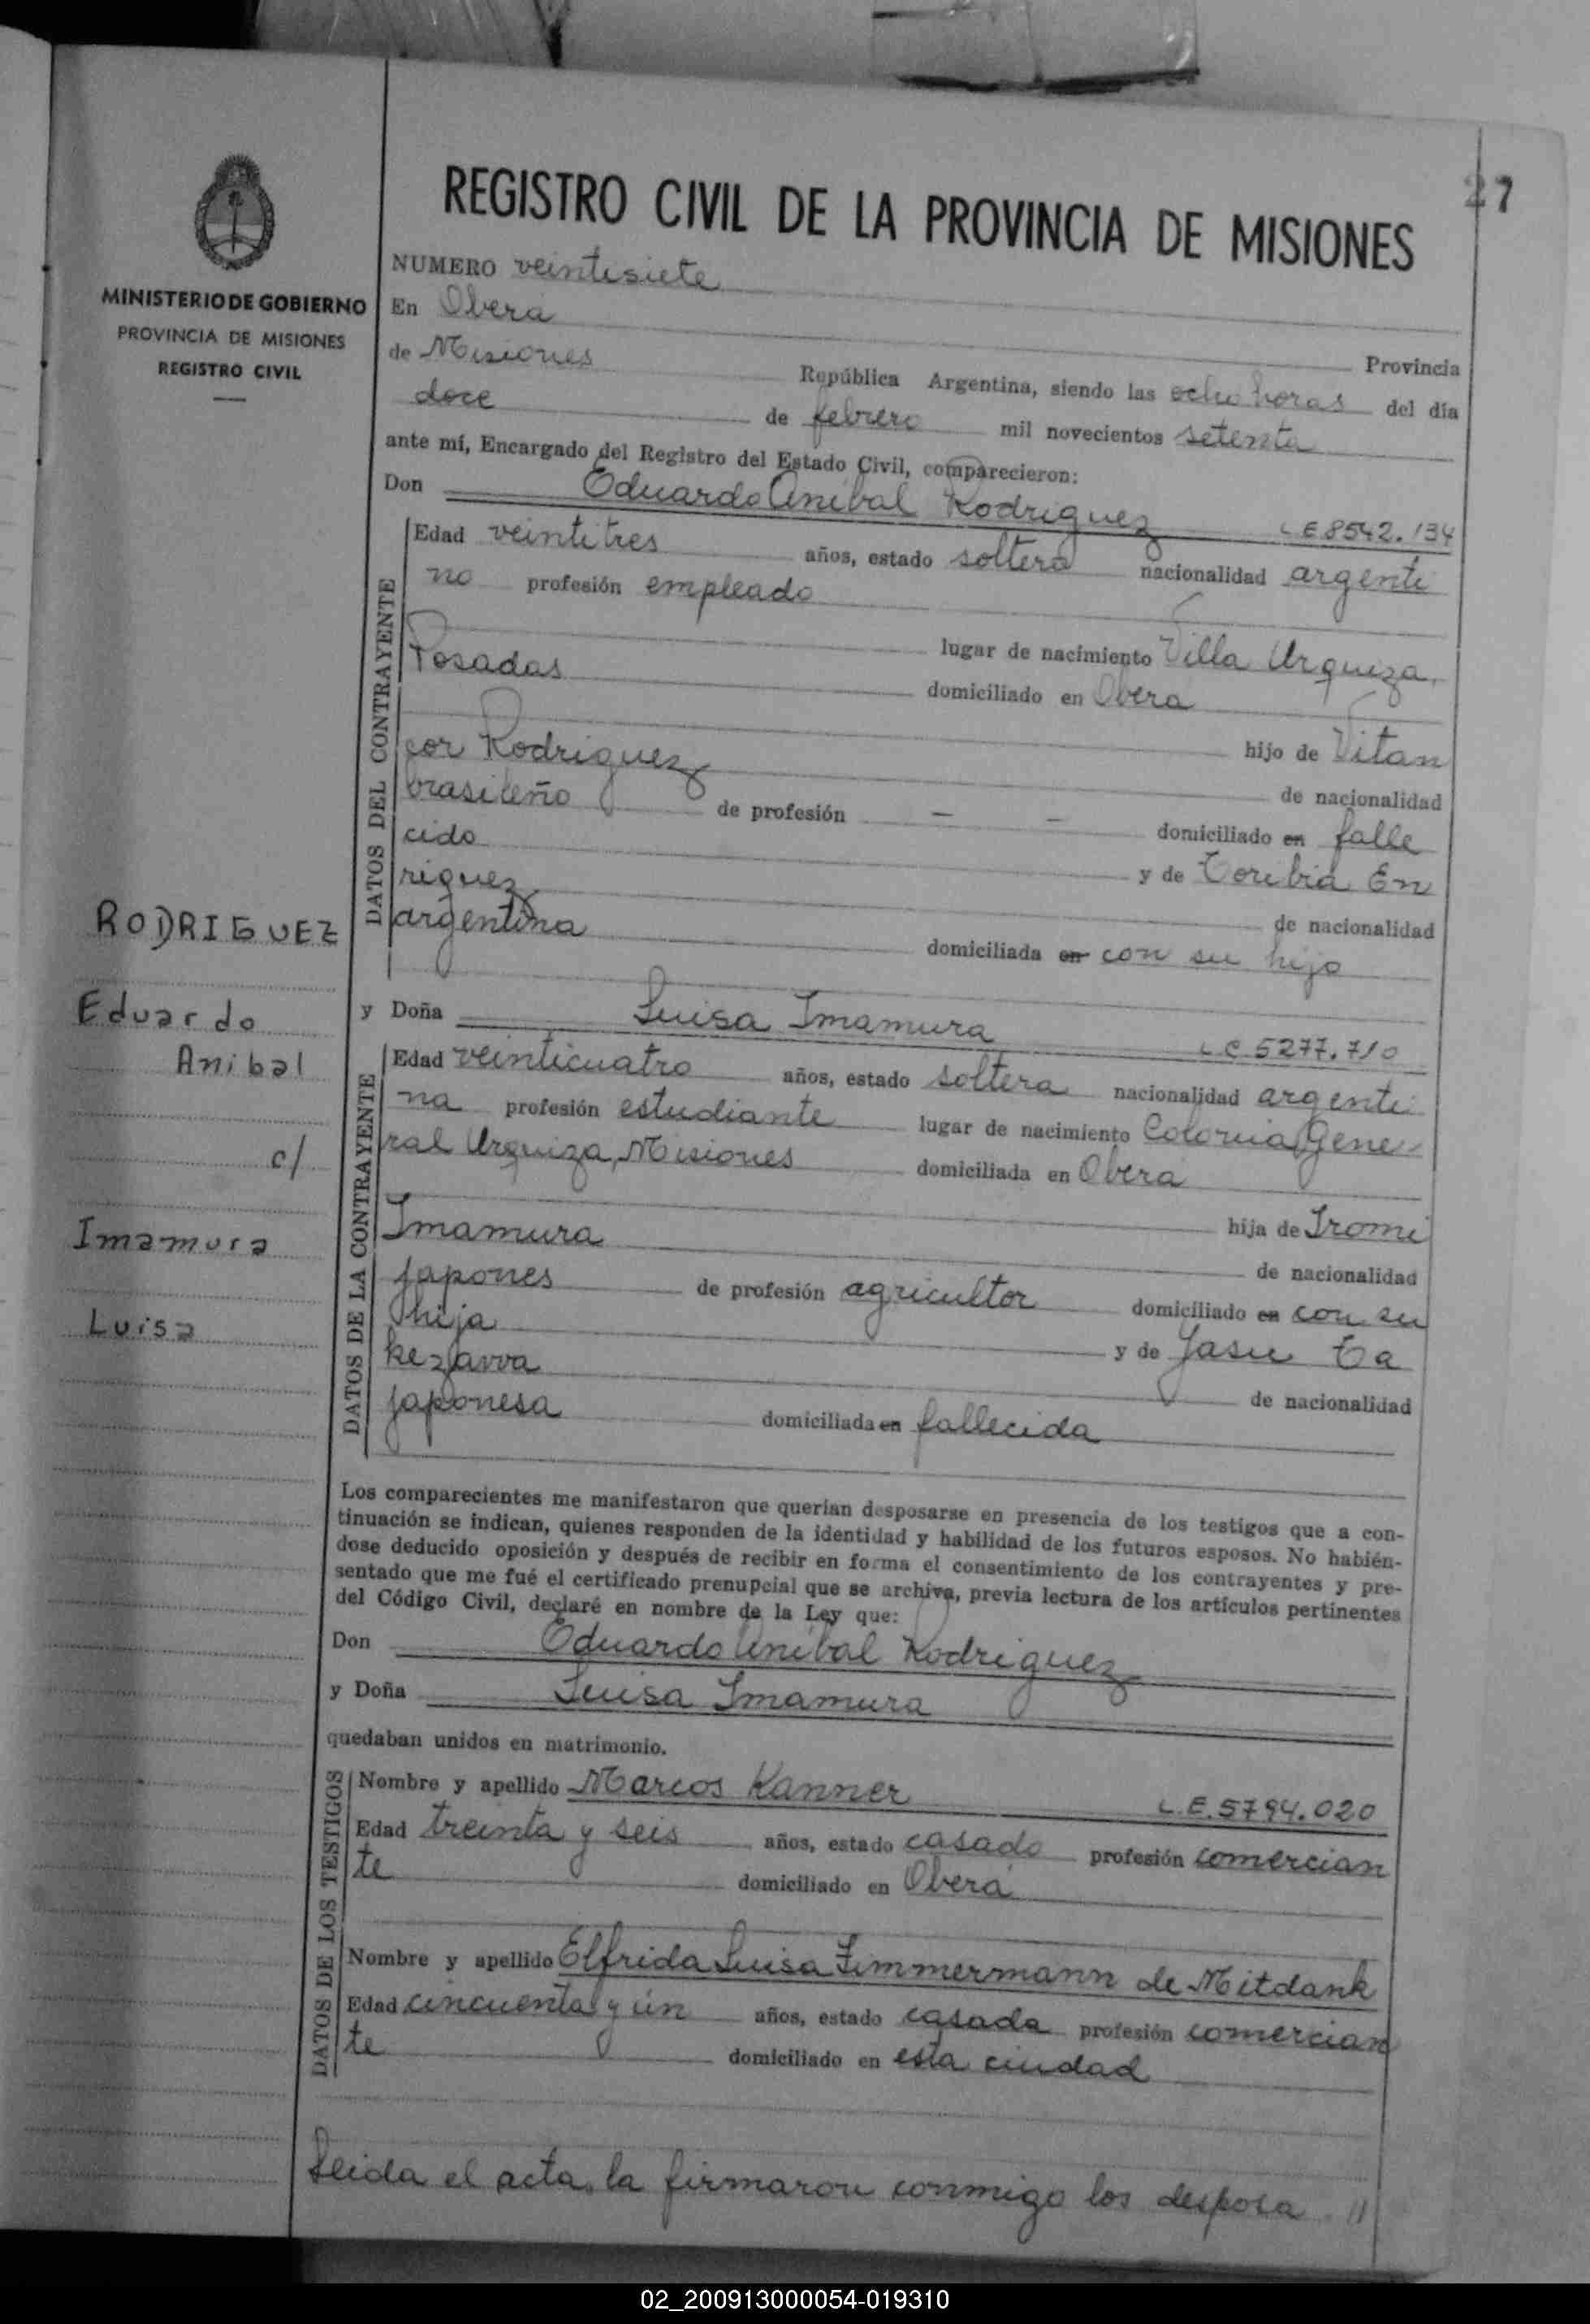 27
REGISTRO CIVIL DE LA PROVINCIA DE MISIONES
MINISTERIO DE GOBIERNO
PROVINCIA DE MISIONES
REGISTRO CIVIL
NUMERO veintisiete
En Oberá Provincia
de Misiones República Argentina, siendo las ocho horas del día
doce de febrero mil novecientos setenta
ante mí, Encargado del Registro del Estado Civil, comparecieron:
Don Eduardo Anibal Rodriguez L E 8542.134
DATOS DEL CONTRAYENTE
Edad veintitres años, estado soltero nacionalidad argenti
no profesión empleado
lugar de nacimiento Villa Urquiza,
Posadas domiciliado en Oberá
hijo de Vitan
cor Rodriguez de nacionalidad
brasileño de profesión — — domiciliado en falle
cido y de Toribia En
riquez de nacionalidad
argentina domiciliada en con su hijo
y Doña Luisa Imamura L C 5277.710
DATOS DE LA CONTRAYENTE
Edad veinticuatro años, estado soltera nacionalidad argenti
na profesión estudiante lugar de nacimiento Colonia Gene
ral Urquiza, Misiones domiciliada en Oberá
hija de Iromi
Imamura de nacionalidad
japones de profesión agricultor domiciliado en con su
hija y de Jasu Ta
kezawa de nacionalidad
japonesa domiciliada en fallecida
RODRIGUEZ
Eduardo
Anibal
c/
Imamura
Luisa
Los comparecientes me manifestaron que querían desposarse en presencia de los testigos que a con-
tinuación se indican, quienes responden de la identidad y habilidad de los futuros esposos. No habién-
dose deducido oposición y después de recibir en forma el consentimiento de los contrayentes y pre-
sentado que me fué el certificado prenupcial que se archiva, previa lectura de los artículos pertinentes
del Código Civil, declaré en nombre de la Ley que:
Don Eduardo Anibal Rodriguez
y Doña Luisa Imamura
quedaban unidos en matrimonio.
DATOS DE LOS TESTIGOS
Nombre y apellido Marcos Kanner L.E. 5794.020
Edad treinta y seis años, estado casado profesión comercian
te domiciliado en Oberá
Nombre y apellido Elfrida Luisa Zimmermann de Mitdank
Edad cincuenta y un años, estado casada profesión comercian
te domiciliado en esta ciudad
Leida el acta, la firmaron conmigo los desposa //
02_200913000054-019310